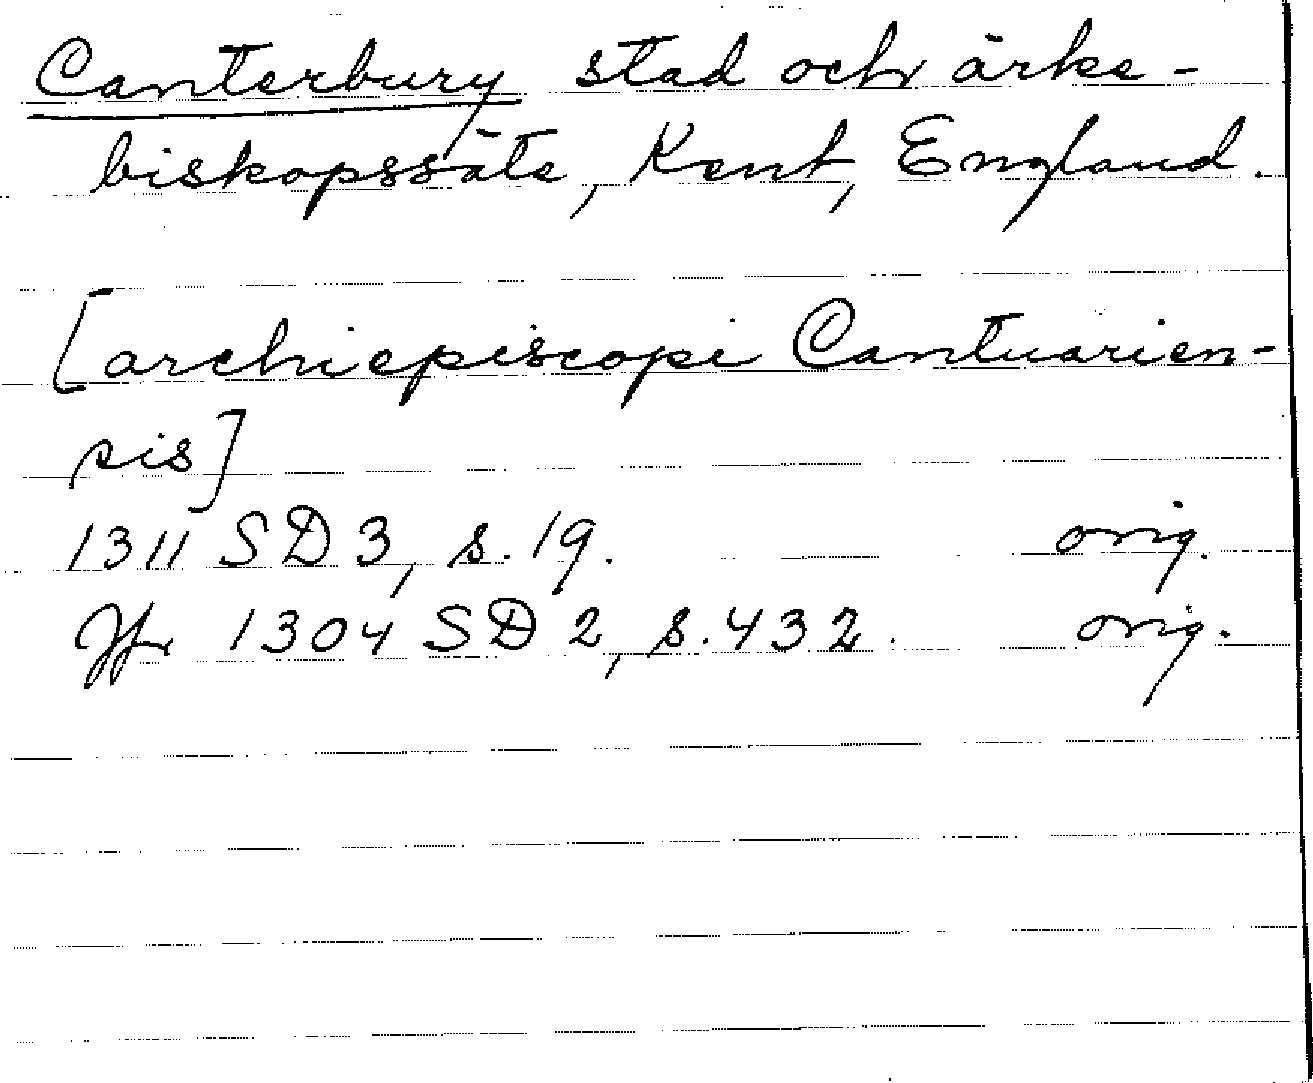 Canterbury stad och ärke-
biskopssäte, Kent, England.
[archiepiscopi Cantuarien-
sis]
1311 SD 3, s. 19. orig.
Jfr 1304 SD 2, s. 432. orig.